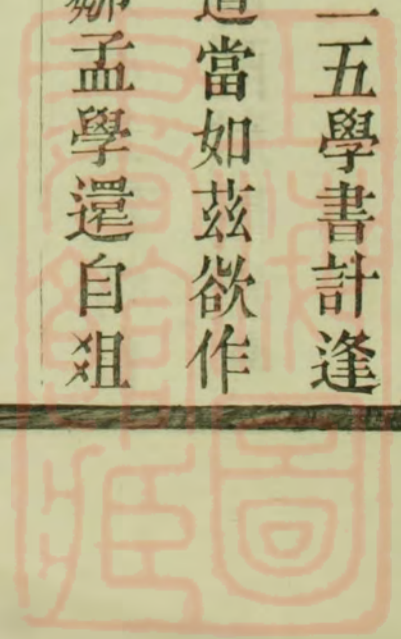 一五學書計逢
道當如茲欲作
鄒孟學還自爼